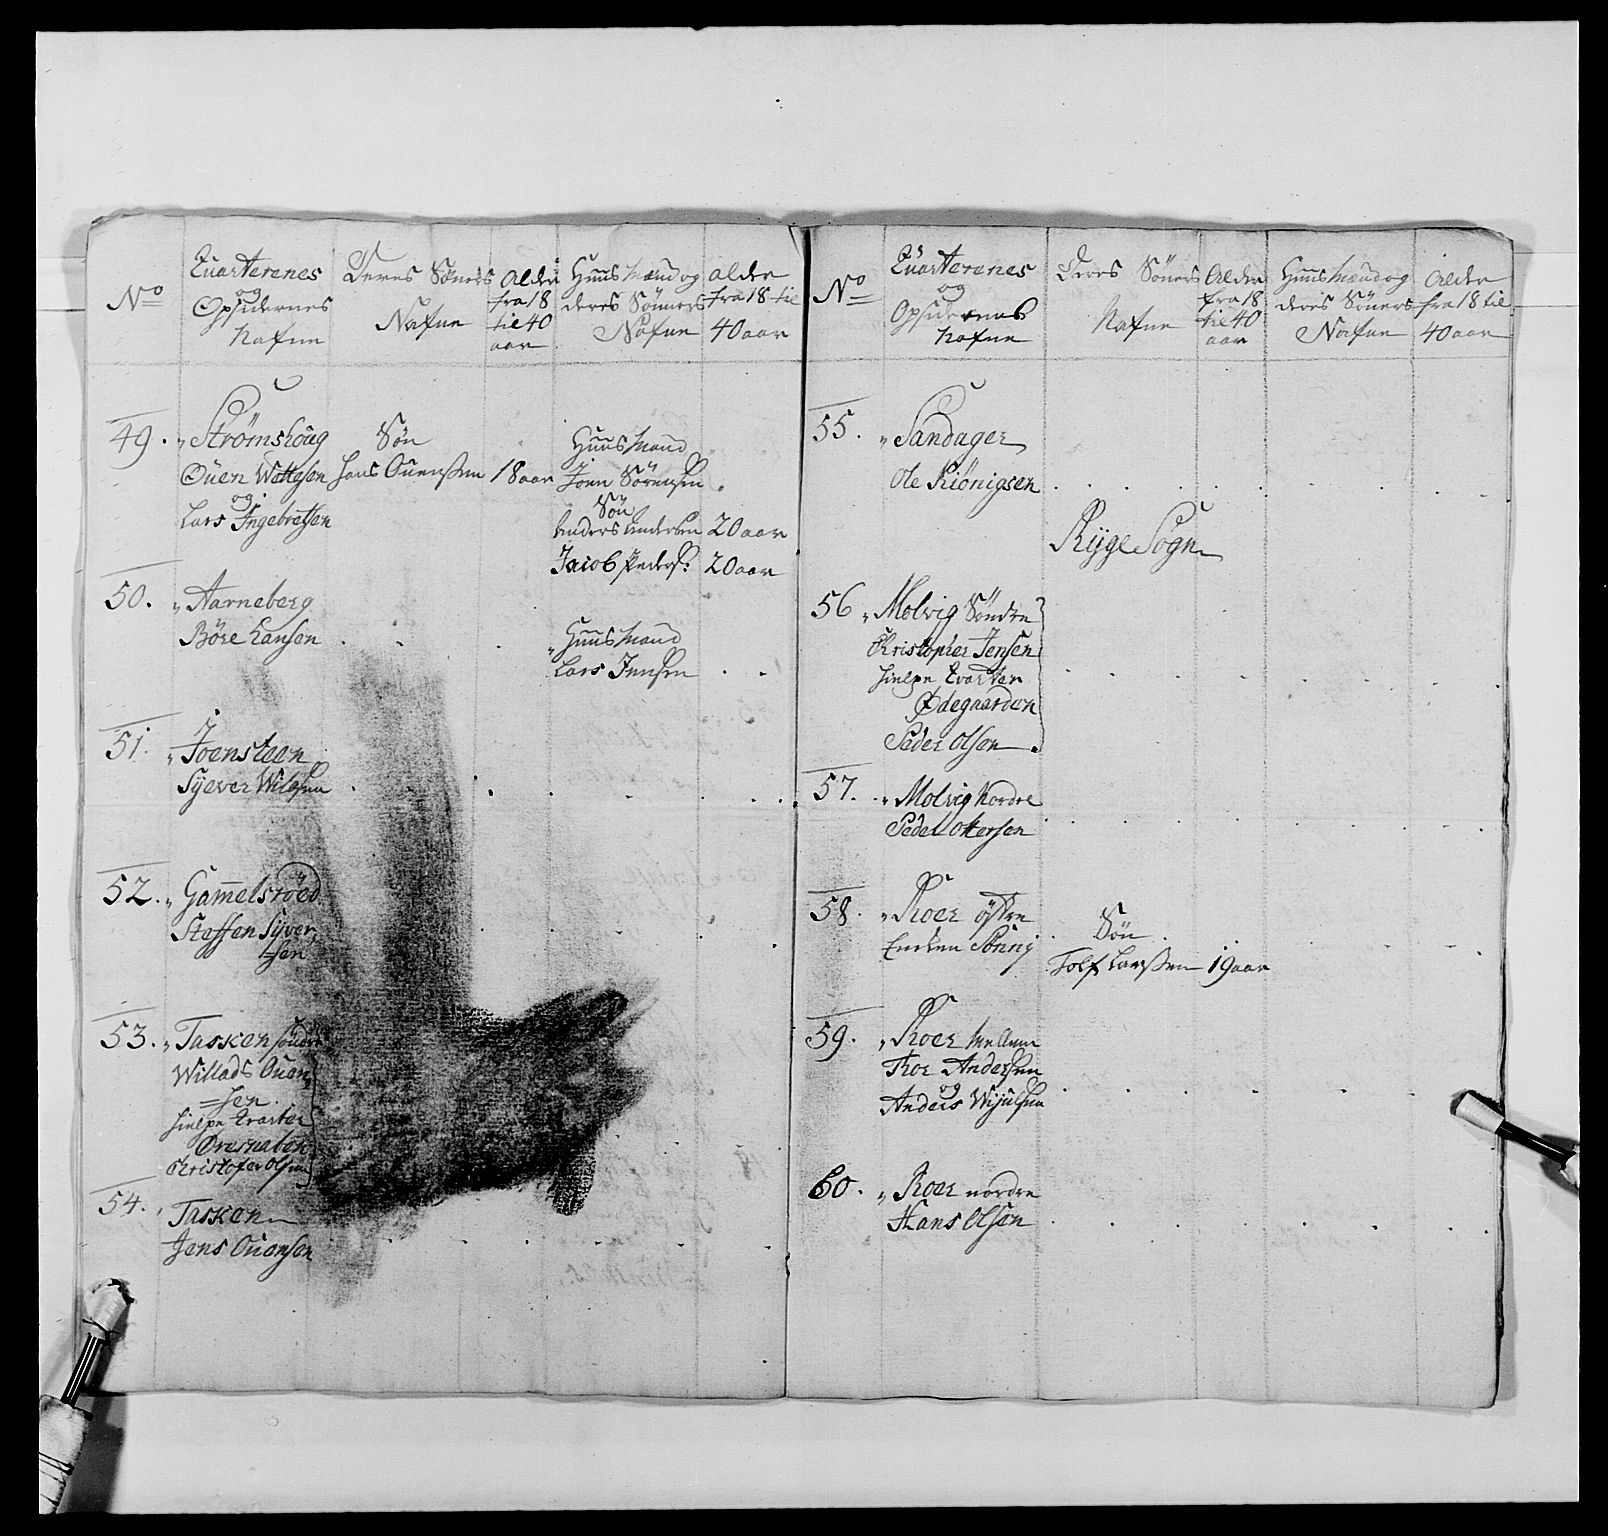 No
Quarterenes
og
Opsidernes
Nafne
Deres Söners
Nafne
Alder
fra 18
til 40
aar
Huusmænd og
deres Sönners
Nafne
alder
fra 18 til
40 aar
49. Strømshoug
Ouen Wettesen
og
Lars Ingebretsen
Søn
Hans Ouenssen 18 aar
Huusmand
Joen Sörensen
Søn
Anders Andersen 20 aar
Jacob Peders: 20 aar
50. Aarneberg
Böre Hansen
Huusmand
Lars Jensen
51. Joensteen
Syever Wilsen
52. Gam̅elsröed
Steffen Syver
=sen
53. Tasken söndre
Willads Ouen
=sen.
hielpe Qvarter
Øresnaben
Christofer Olsen
54. Tasken
Jens Ouensen
No
Quarterenes
og
Opsidernes
Nafne
Deres Söners
Nafne
Alder
fra 18
til 40
aar
Huusmænd og
deris Söners
Nafne
Alder
fra 18 til
40 aar
55. Sandager
Ole Kiönigsen
Rygge Sogn
56 Molvig Söndre
Christopher Jensen
hielpe Qvarter
Ødegaarden
Peder Olsen
57. Molvig Nordre
Peder Ottersen
58. Roer östre
Enchen Sönnj
Søn
Tolf Larssen 19 aar
59. Roer Mellem
Thor Andersen
og
Anders Wijulsen
60. Roer nordre
Hans Olsen